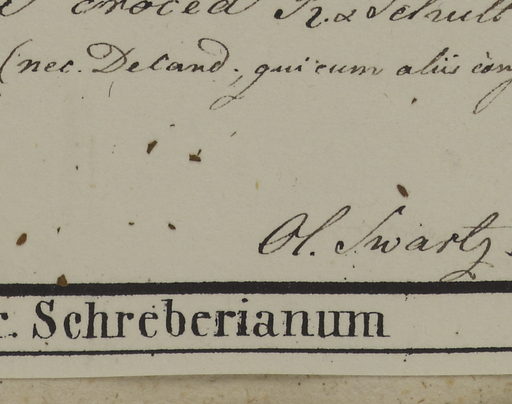 crocea R. & Schult
(nec. Decand. qui cum aliis conj
Ol. Swartz.
r. Schreberianum